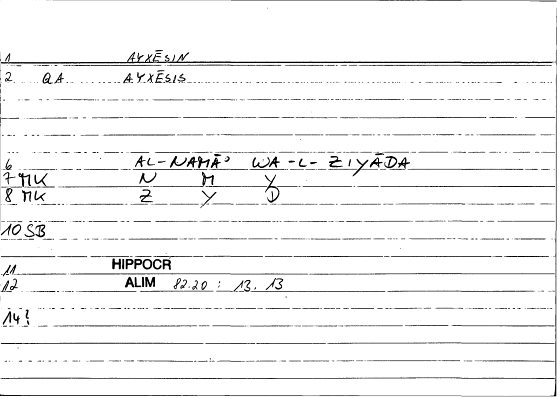 1 AYXĒSIN
2 QA AYXĒSIS
6 AL-NAMĀʾ WA-L-ZIYĀDA
7 MK N M Y
8 MK Z Y D
10 SB
11 HIPPOCR
12 ALIM 82.20 : 13. 13
14 }